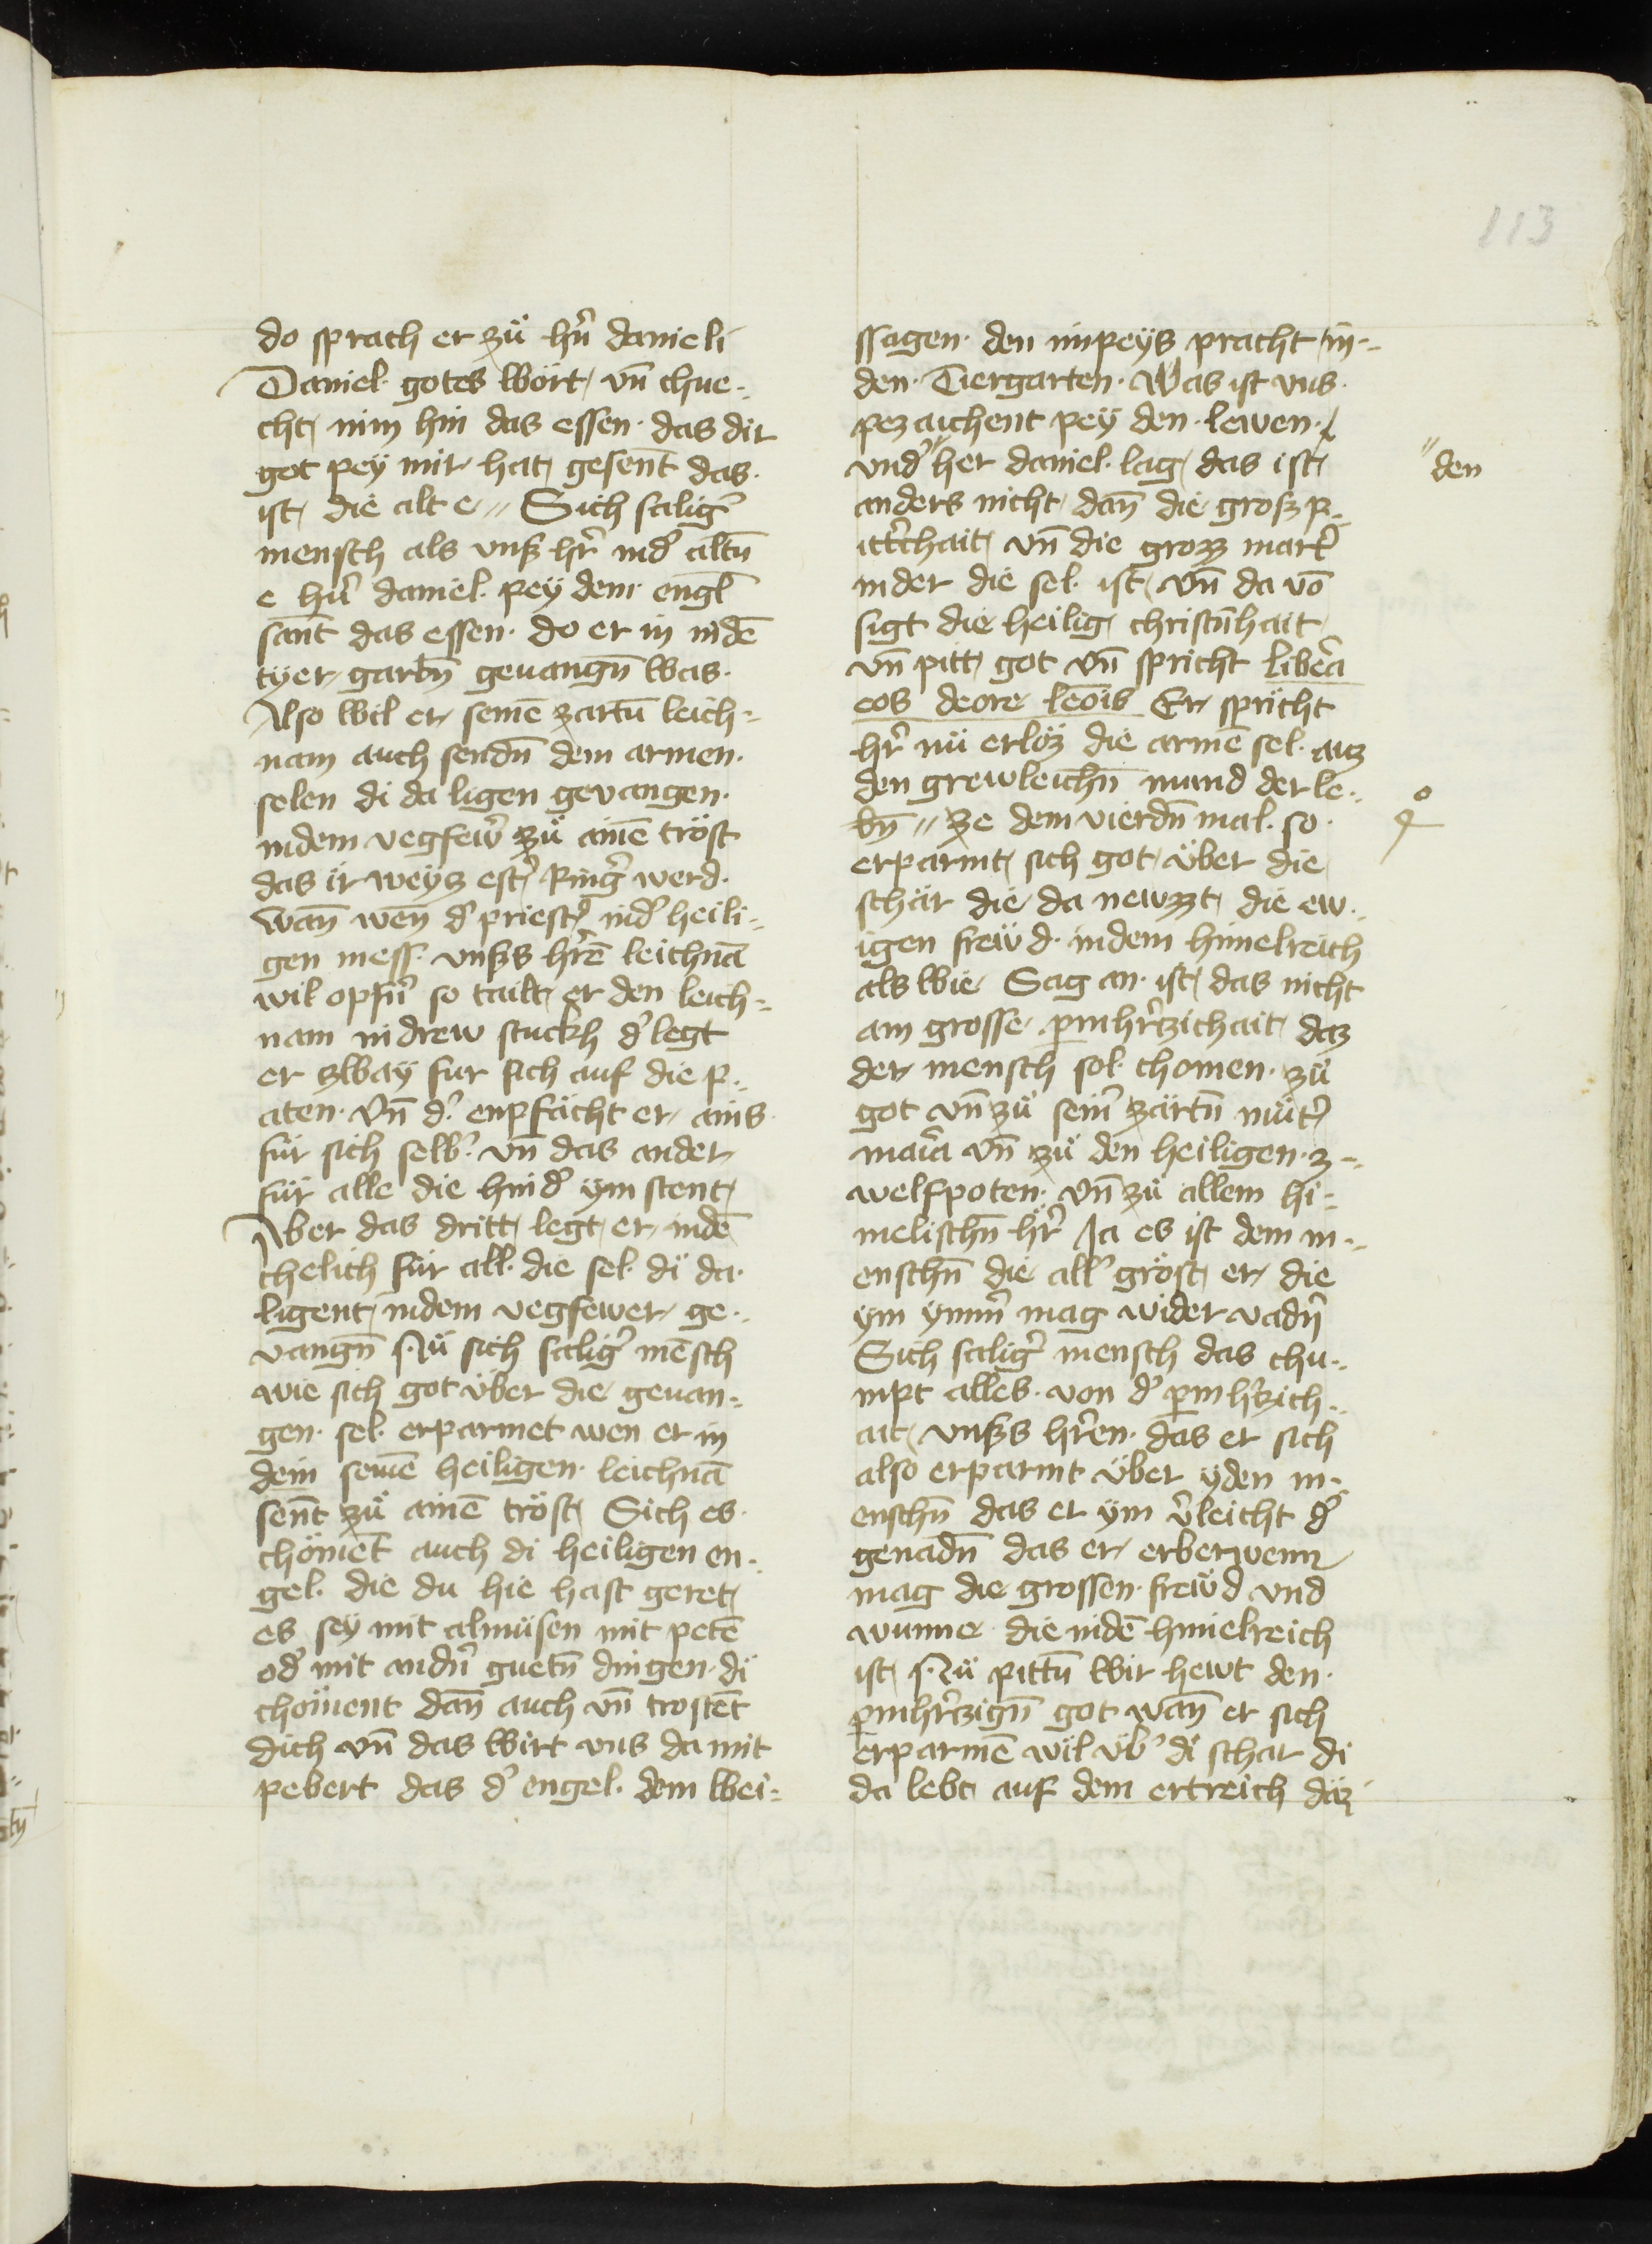 113
do sprach er zů hrn̄ danieli
Daniel gotes wort, vn̄ chne-
cht, nim hin das essen. das dir
got pey mir hat, gesen̄t das.
ist, die alt e // Sich salig̾
mensch als vnß̾ hr̄ in d̾ altn̄
e hrn̄ daniel. pey dem engl̄
san̄t das essen. do er in in dē
tyer gartn̄ geuangn̄ was.
Also wil er seinē zartn̄ leich-
nam auch sendn̄ dem armen.
selen di da ligen gevangen.
in dem vegfew̾ zů ainē tröst
das ir weyz est̾ Ring̾ werd.
wan̄ wen̄ d̾ priest̾ in d̾ heili-
gen mess. vnß̾s hr̄ē leichnā
wil opfn̄ so tailt, er den leich-
nam in drew stuckh d̾ legt
er zway fur sich auf die p-
aten. vn̄ d̾ enpfächt er, ains
für sich selb̾ vn̄ das ander
für alle die hind̾ ym stent,
Aber das dritt, legt, er, in dē
chelich für all. die sel. di da.
ligent, in dem vegfewer, ge-
vangn̄ Nů sich salig̾ mēsch
wie sich got über die geuan-
gen. sel. erparmet wen er in
dem seinē heiligen. leichnā
sen̄t zů ainē tröst, Sich es.
chöment auch di heiligen en-
gel. die du hie hast geret,
es sey mit almüsen mit petē
od̾ mit andn̄ guetn̄ dingen. di
chöment dan̄ auch vn̄ trostēt
dich vn̄ das wirt vns da mit
pebert das d̾ engel. dem wei-
ssagen. den inpeys pracht in-
den. Tiergarten. Was ist vns.
pezaichent pey den. lewen.
vnd̾ her daniel. lag, das ist,
"den
anders nicht, dan̄ die groß p-
itt̾chait, vn̄ die grozz mart̾
in der die sel. ist, vn̄ da vō
sigt die heilig, christn̄hait,
vn̄ pitt, got vn̄ spricht liber̄a
eos deore leōis Er spricht
hr̄ nü erlöz die armē sel. auz
den grewleichn̄ mund der le-
bn̄ // ze dem vierdn̄ mal. so.
erparmt, sich got, über die
schär die da newzzt, die ew-
igen frewd. in dem himelreich
als wie Sag an. ist, das nicht
ain grosse p̄mhr̄czichait, daz
der mensch sol. chomen. zů
got vn̄ zů sein̾ zärtn̄ můt̾
mar̄ia vn̄ zů den heiligen. z-
welfpoten. vn̄ zů allem hi-
melischn̄ hr̄ Ja es ist dem m-
enschn̄ die all̾ gröst, er, die
ym ymm̾ mag wider vadn̄
Sich salig̾ mensch das chu-
mpt alles. von d̾ p̄mh̾czich-
ait, vnß̾s hr̄en. das er sich
also erparmt über yden m-
enschn̄ das er ym v̾leicht d̾
genadn̄ das er, erberwenn
mag die grossen. frewd vnd
wunne die in dē himelreich
ist, Nů pittn̄ wir hewt den.
p̄mhr̄czign̄ got wan̄ er sich
erparmē wil üb̾ di schar di
da lebt, auf dem ertreich däz